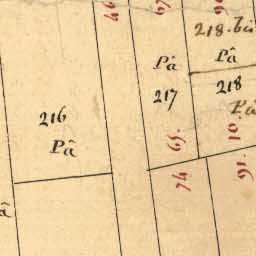 218. bis
Pâ
Pâ
217
218
Pâ
216
Pâ
65.
10.
74
91.
â